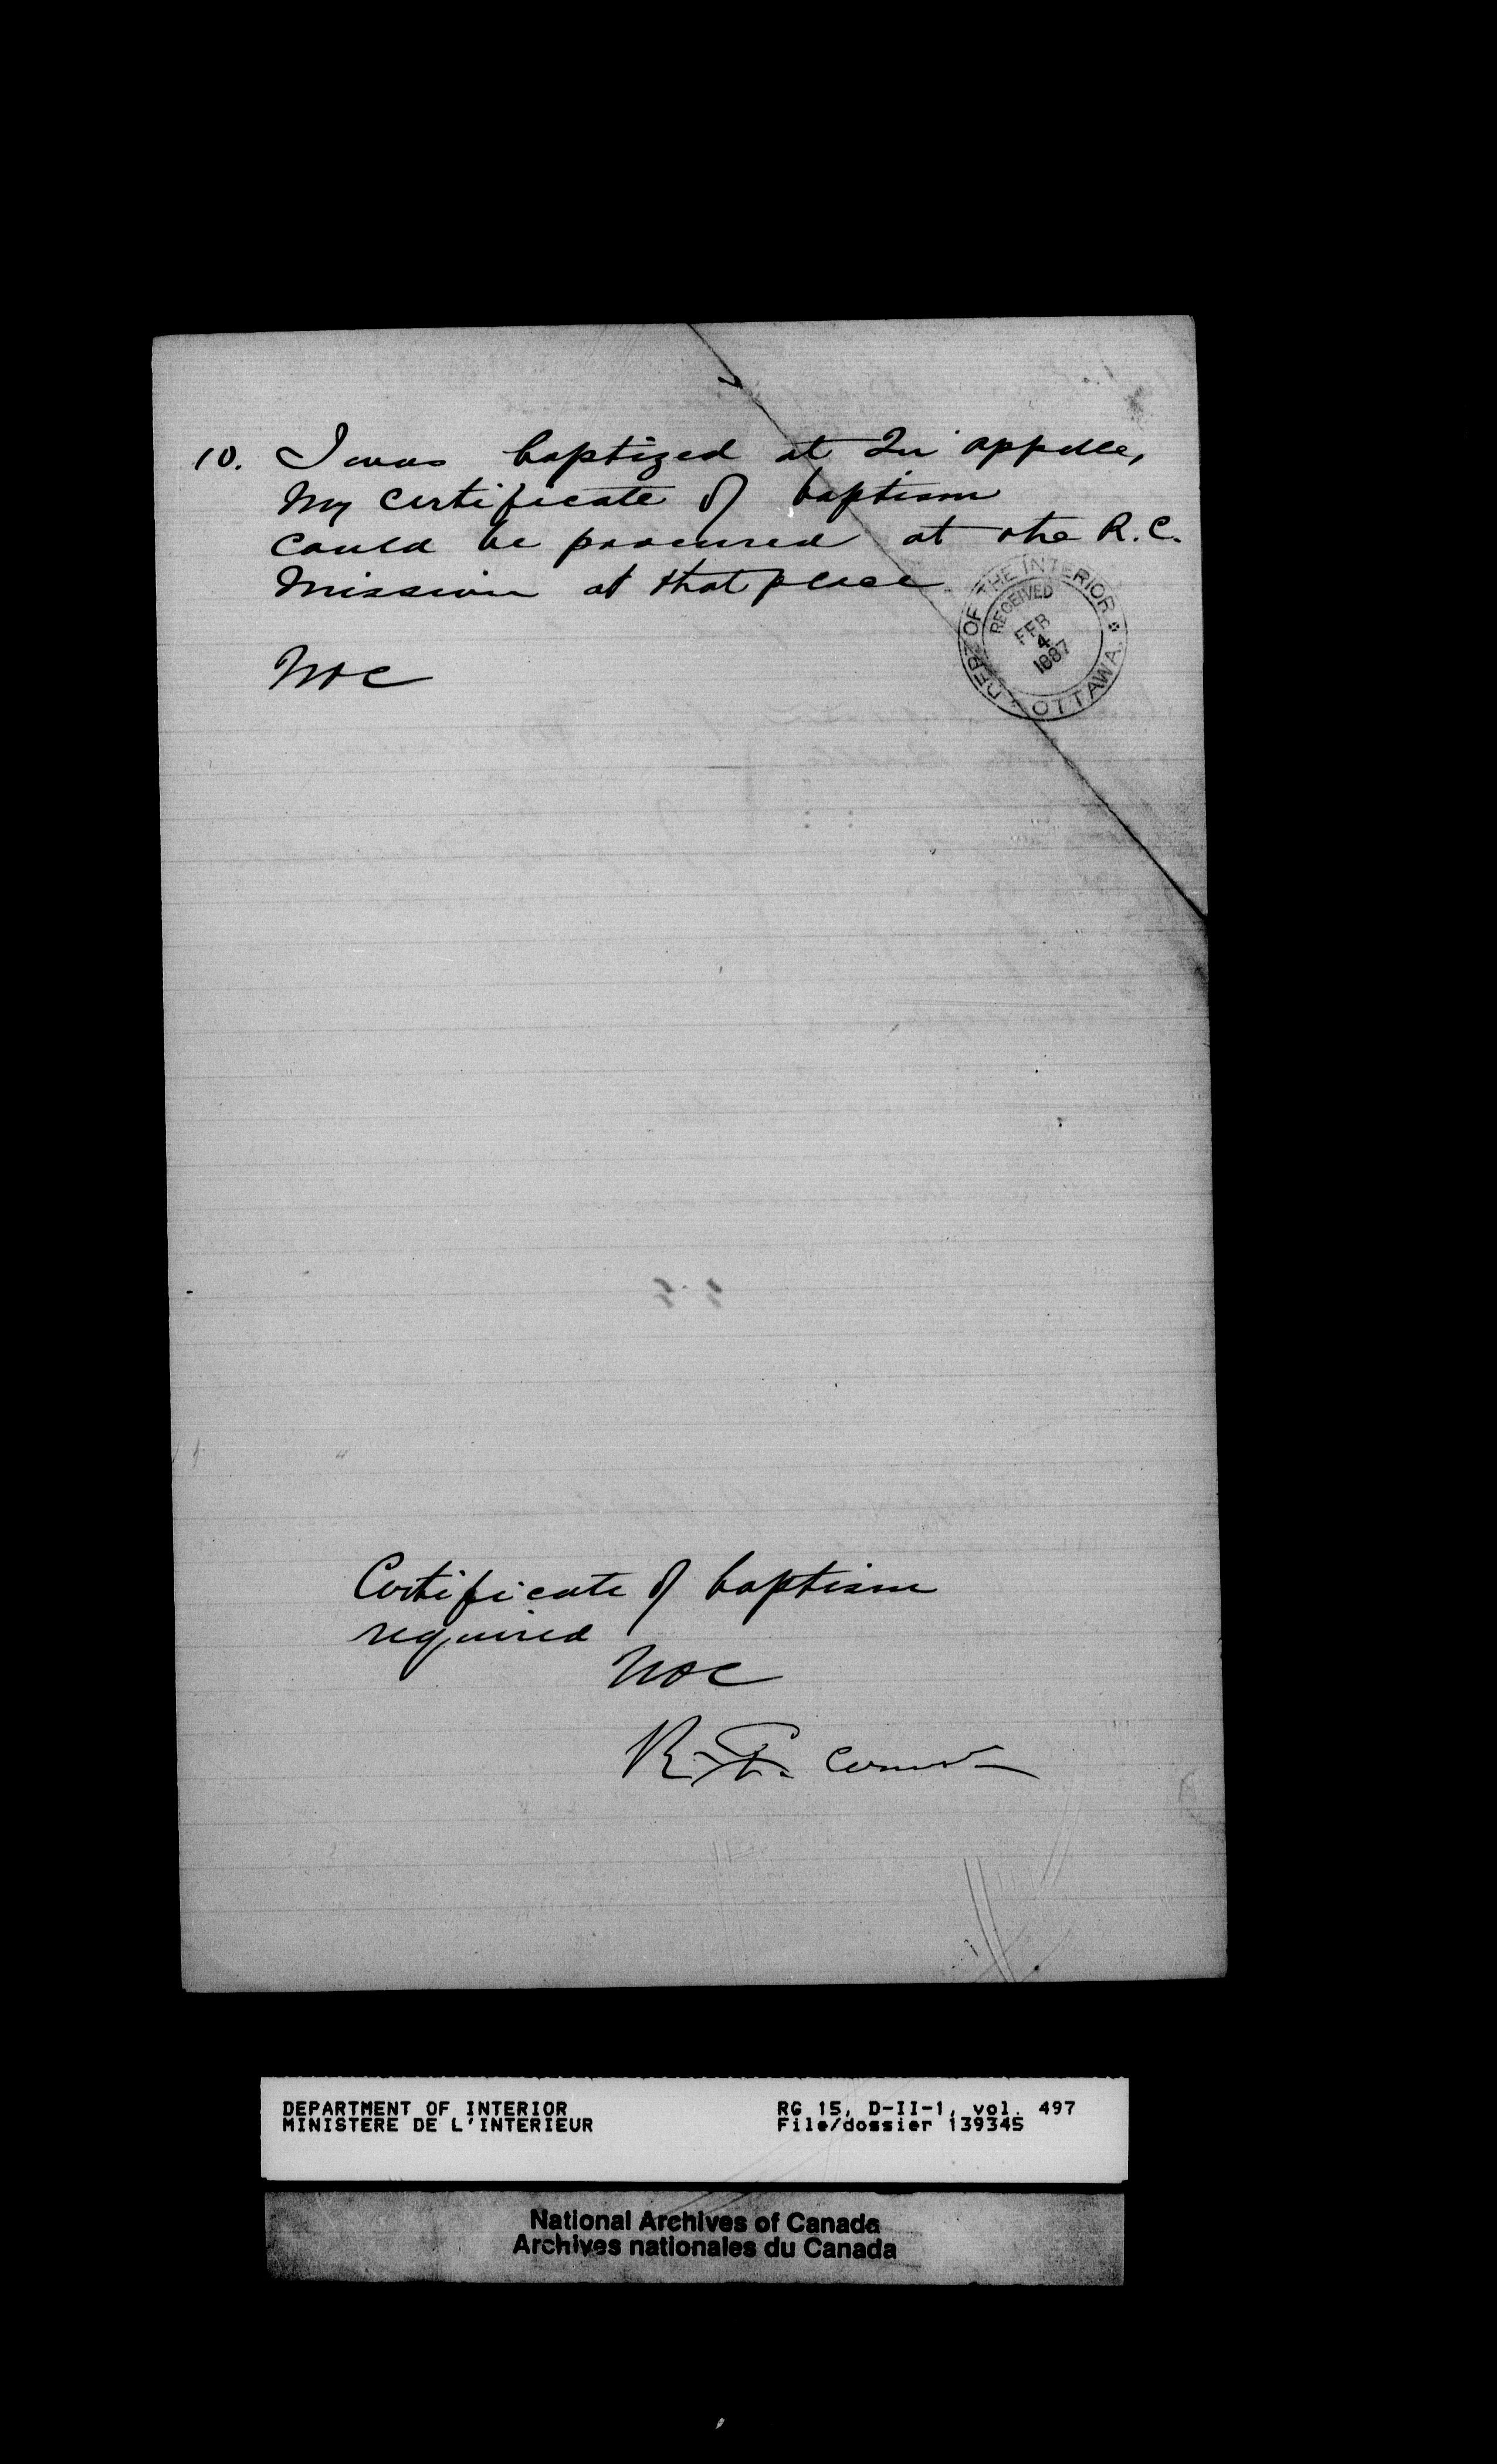 10. I was baptized at Qu'appelle,
My certificate of baptism
could be procured at the R.C.
Mission at that place
DEPT OF THE INTERIOR
RECEIVED
FEB
4
1887
OTTAWA.
NOC
Certificate of baptism
required
NOC
R.
DEPARTMENT OF INTERIOR RG 15, D-II-1, vol. 497
MINISTERE DE L'INTERIEUR File/dossier 139345
National Archives of Canada
Archives nationales du Canada